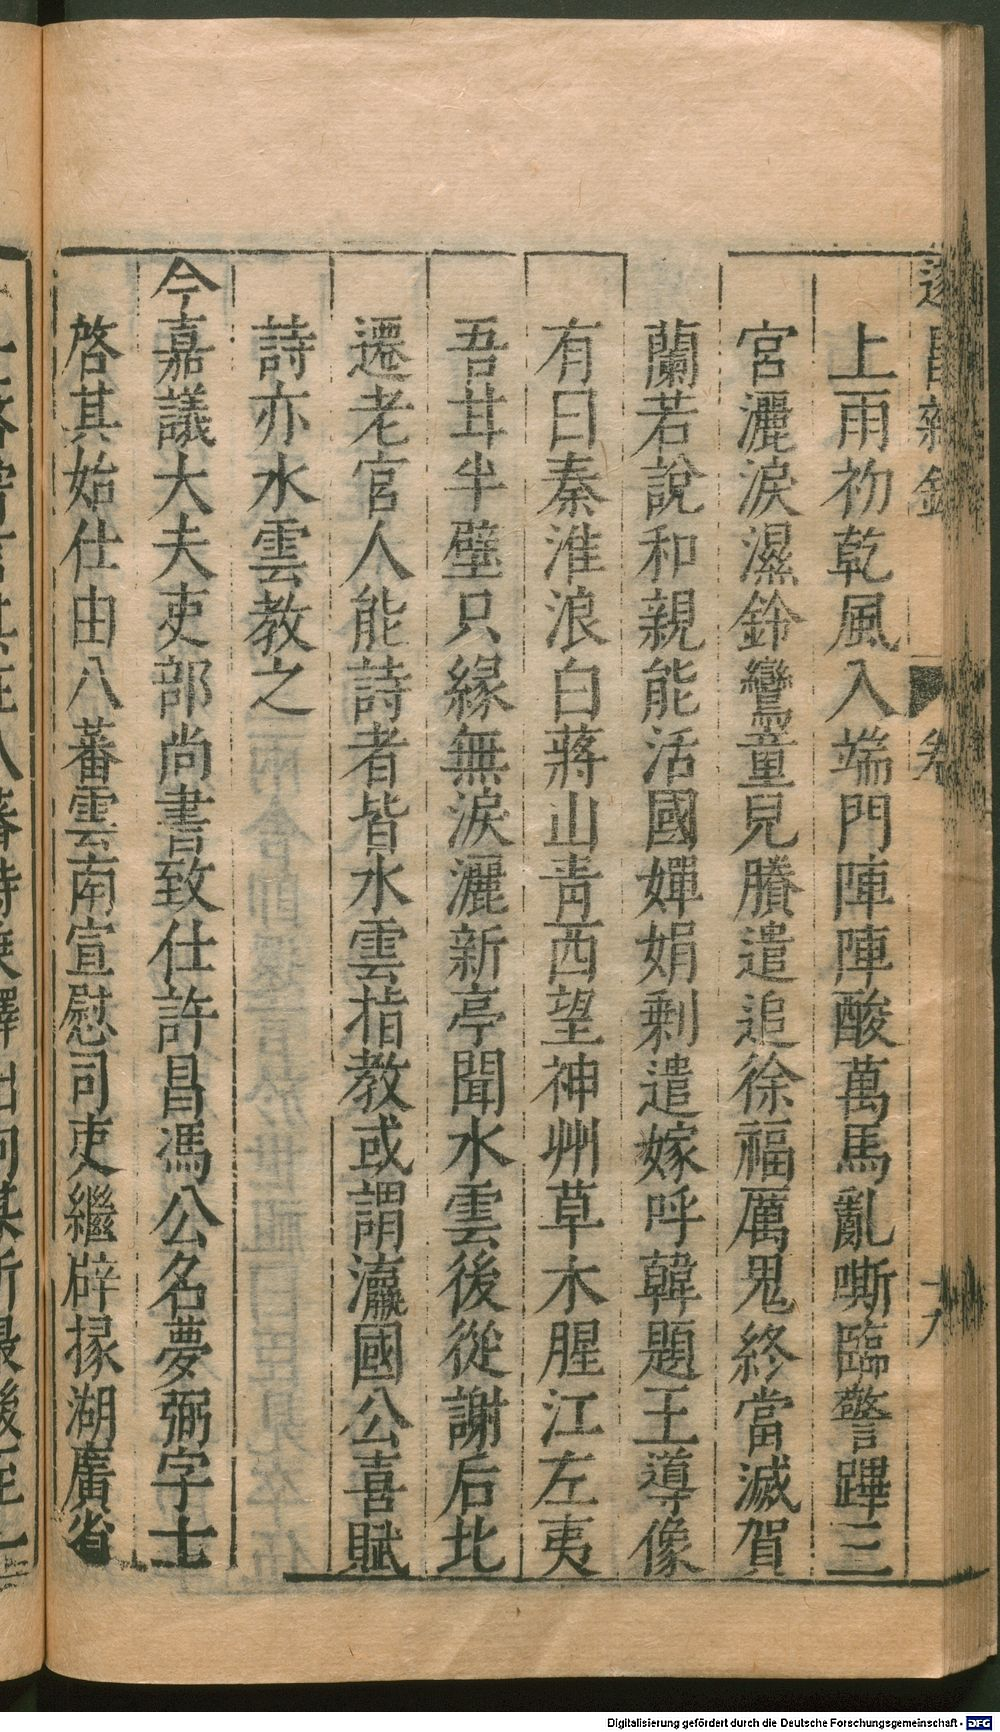 遂昌雜錄 卷 十九
上雨初乾風入端門陣陣酸萬馬亂嘶臨警蹕三
宮灑淚濕鈴鸞童兒賸遣追徐福厲鬼終當滅賀
蘭若說和親能活國嬋娟剩遣嫁呼韓題王導像
有曰秦淮浪白蔣山青西望神州草木腥江左夷
吾甘半壁只緣無淚灑新亭聞水雲後從謝后北
遷老宮人能詩者皆水雲指教或謂瀛國公喜賦
詩亦水雲教之
今嘉議大夫吏部尚書致仕許昌馮公名夢弼字士
啓其始仕由八蕃雲南宣慰司吏繼辟掾湖廣省
Digitalisierung gefördert durch die Deutsche Forschungsgemeinschaft - DFG